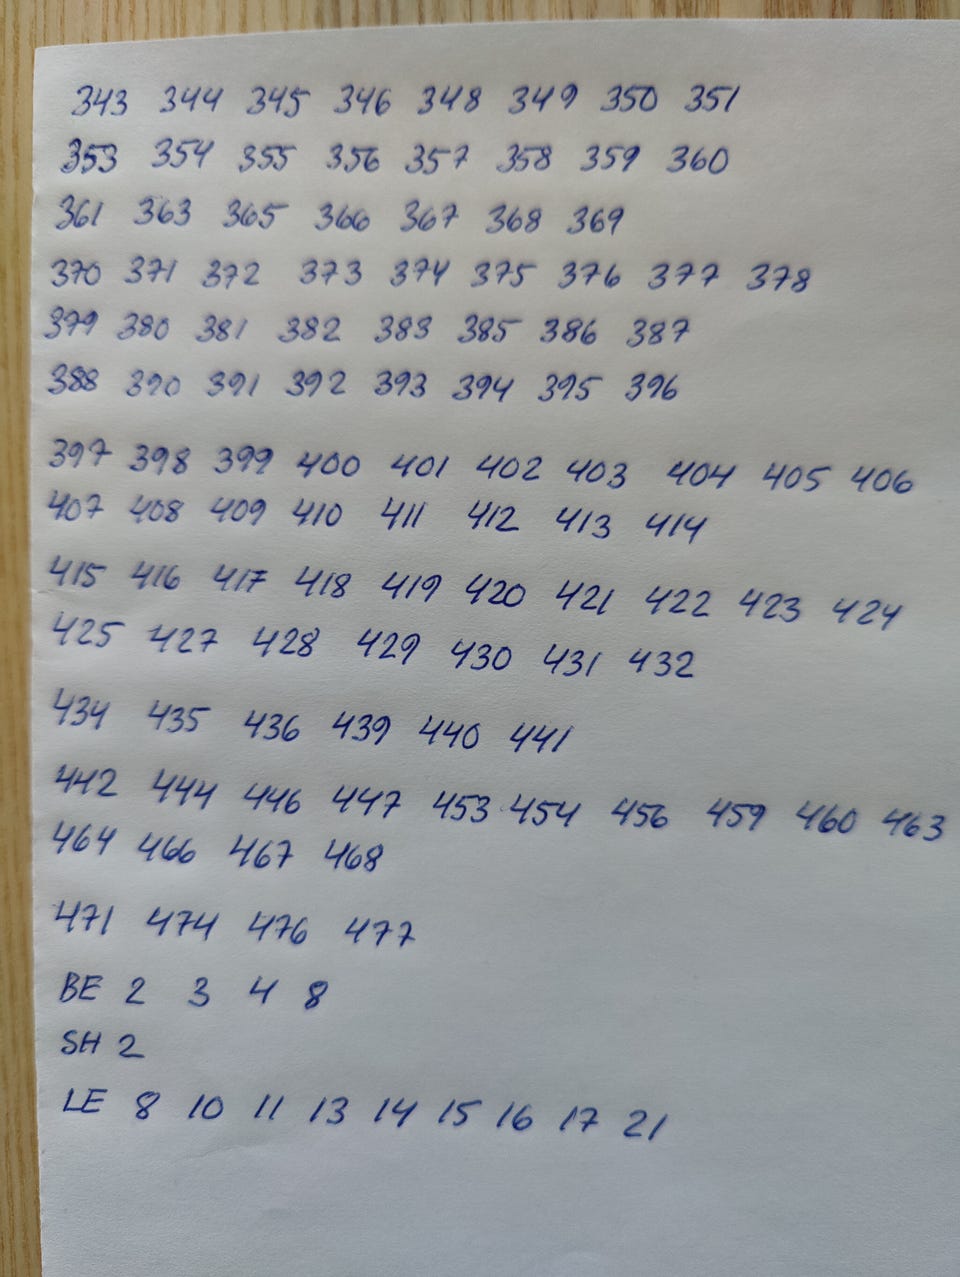 343 344 345 346 348 349 350 351
353 354 355 356 357 358 359 360
361 363 365 366 367 368 369
370 371 372 373 374 375 376 377 378
379 380 381 382 383 385 386 387
388 390 391 392 393 394 395 396
397 398 399 400 401 402 403 404 405 406
407 408 409 410 411 412 413 414
415 416 417 418 419 420 421 422 423 424
425 427 428 429 430 431 432
434 435 436 439 440 441
442 444 446 447 453 454 456 459 460 463
464 466 467 468
471 474 476 477
BE 2 3 4 8
SH 2
LE 8 10 11 13 14 15 16 17 21